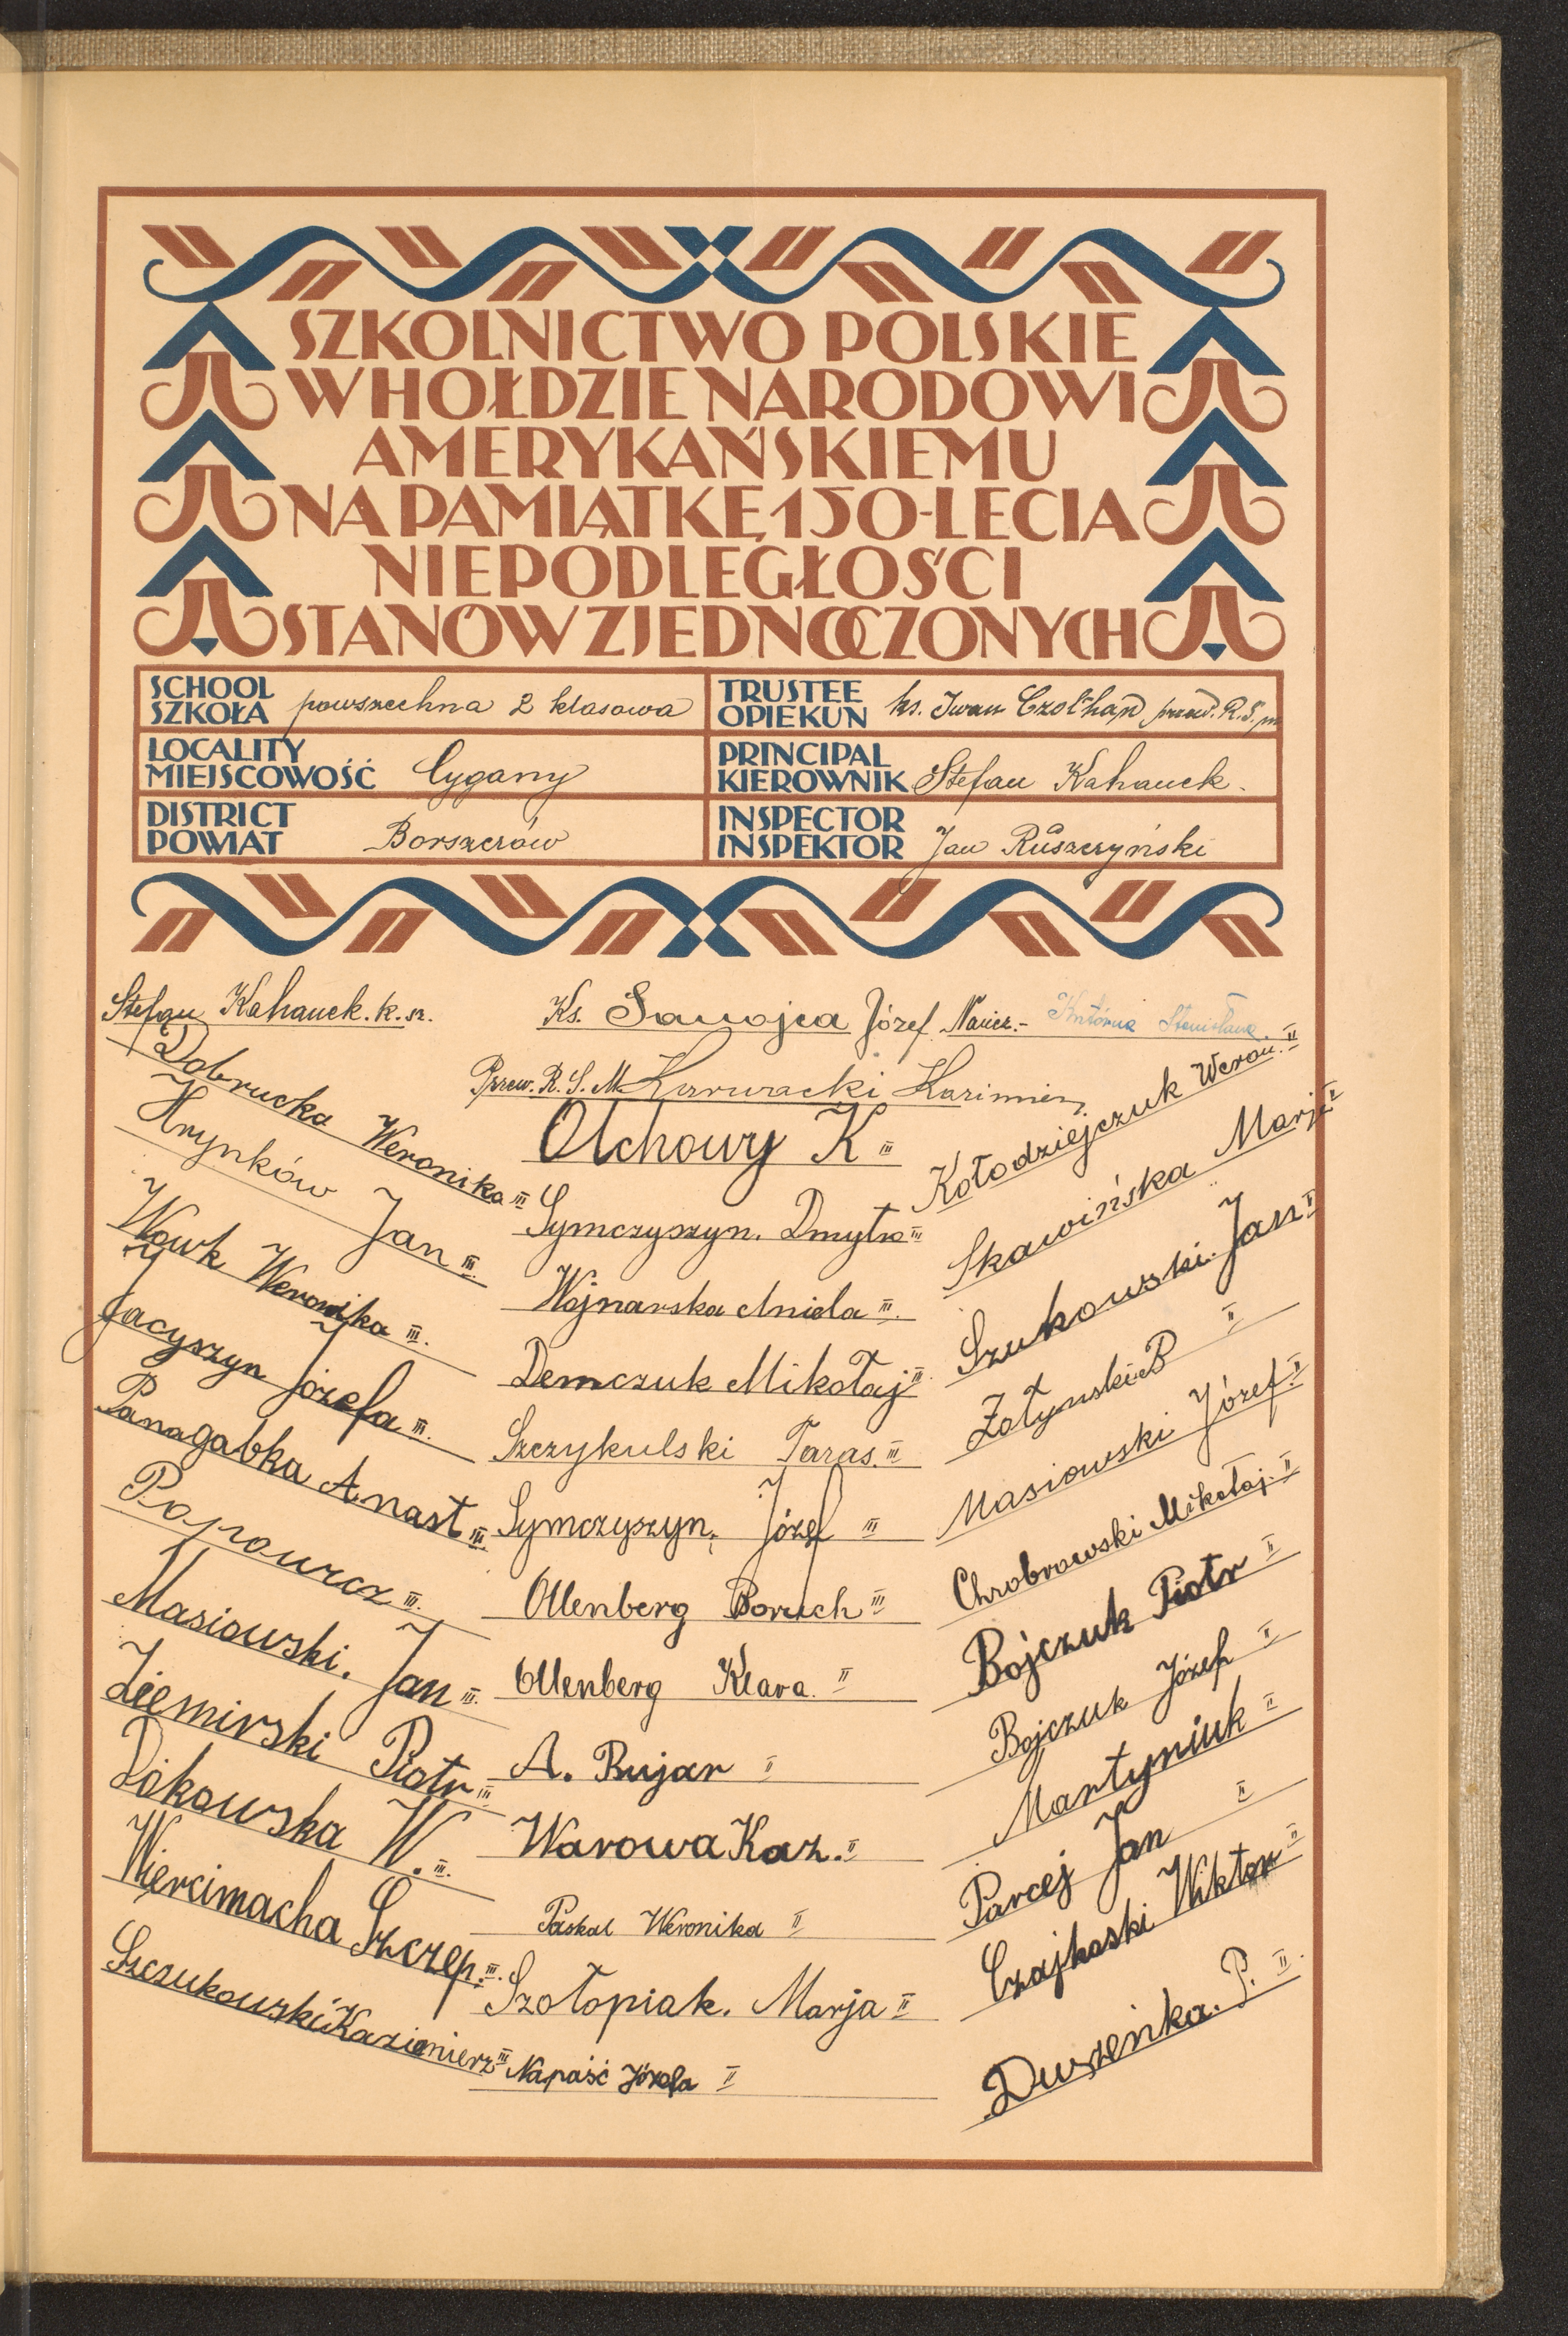 SZKOLNICTWO POLSKIE
W HOŁDZIE NARODOWI
AMERYKAŃSKIEMU
NA PAMIĄTKĘ 150-LECIA
NIEPODLEGŁOŚCI
STANÓW ZJEDNOCZONYCH
SCHOOL
SZKOŁA powszechna 2 klasowa
TRUSTEE
OPIEKUN ks. Iwan przew. R. S. m
LOCALITY
MIEJSCOWOŚĆ Cygany
PRINCIPAL
KIEROWNIK Stefan Kahanek.
DISTRICT
POWIAT Borszczów
INSPECTOR
INSPEKTOR Jan Ruszczyński
Stefan Kahanek. k. sz.
Dobrucka Weronika III
Hrynków Jan III.
Wowk Weronika III.
Jacyszyn Józefa III.
Panagabka Anast III.
Popowicz III.
Masiowski. Jan III.
Ziemirski Piotr III
Dókowska W. III.
Wiercimacha Szczep. III.
Szczukowski Kazimierz III
Ks. Sanojca Józef Naucz.- Stanisława.
Przew. R. S. M. Karwacki Kazimierz
Olchowy K III
Symczyszyn. Dmytro III
Wojnarska Aniela III.
Demczuk Mikołaj III
Szczykulski Taras. III
Symczyszyn. Józef III
Ollenberg Boruch III
Ollenberg Klara. II
A. Bujar II
Warowa Kaz. II
Paskal Weronika II
Szołopiak. Marja II
Napaść Józefa II
Kołodziejczuk Weron. II
Skawińska Marja II
Szukowski. Jan II
Zołynski B II
Masiowski Józef. II
Chrobrowski Mikołaj. II
Bojczuk Piotr II
Bojczuk Józef II
Martyniuk II
Parcej Jan II
Czajkoski Wiktor II
Duszeńka. P. II